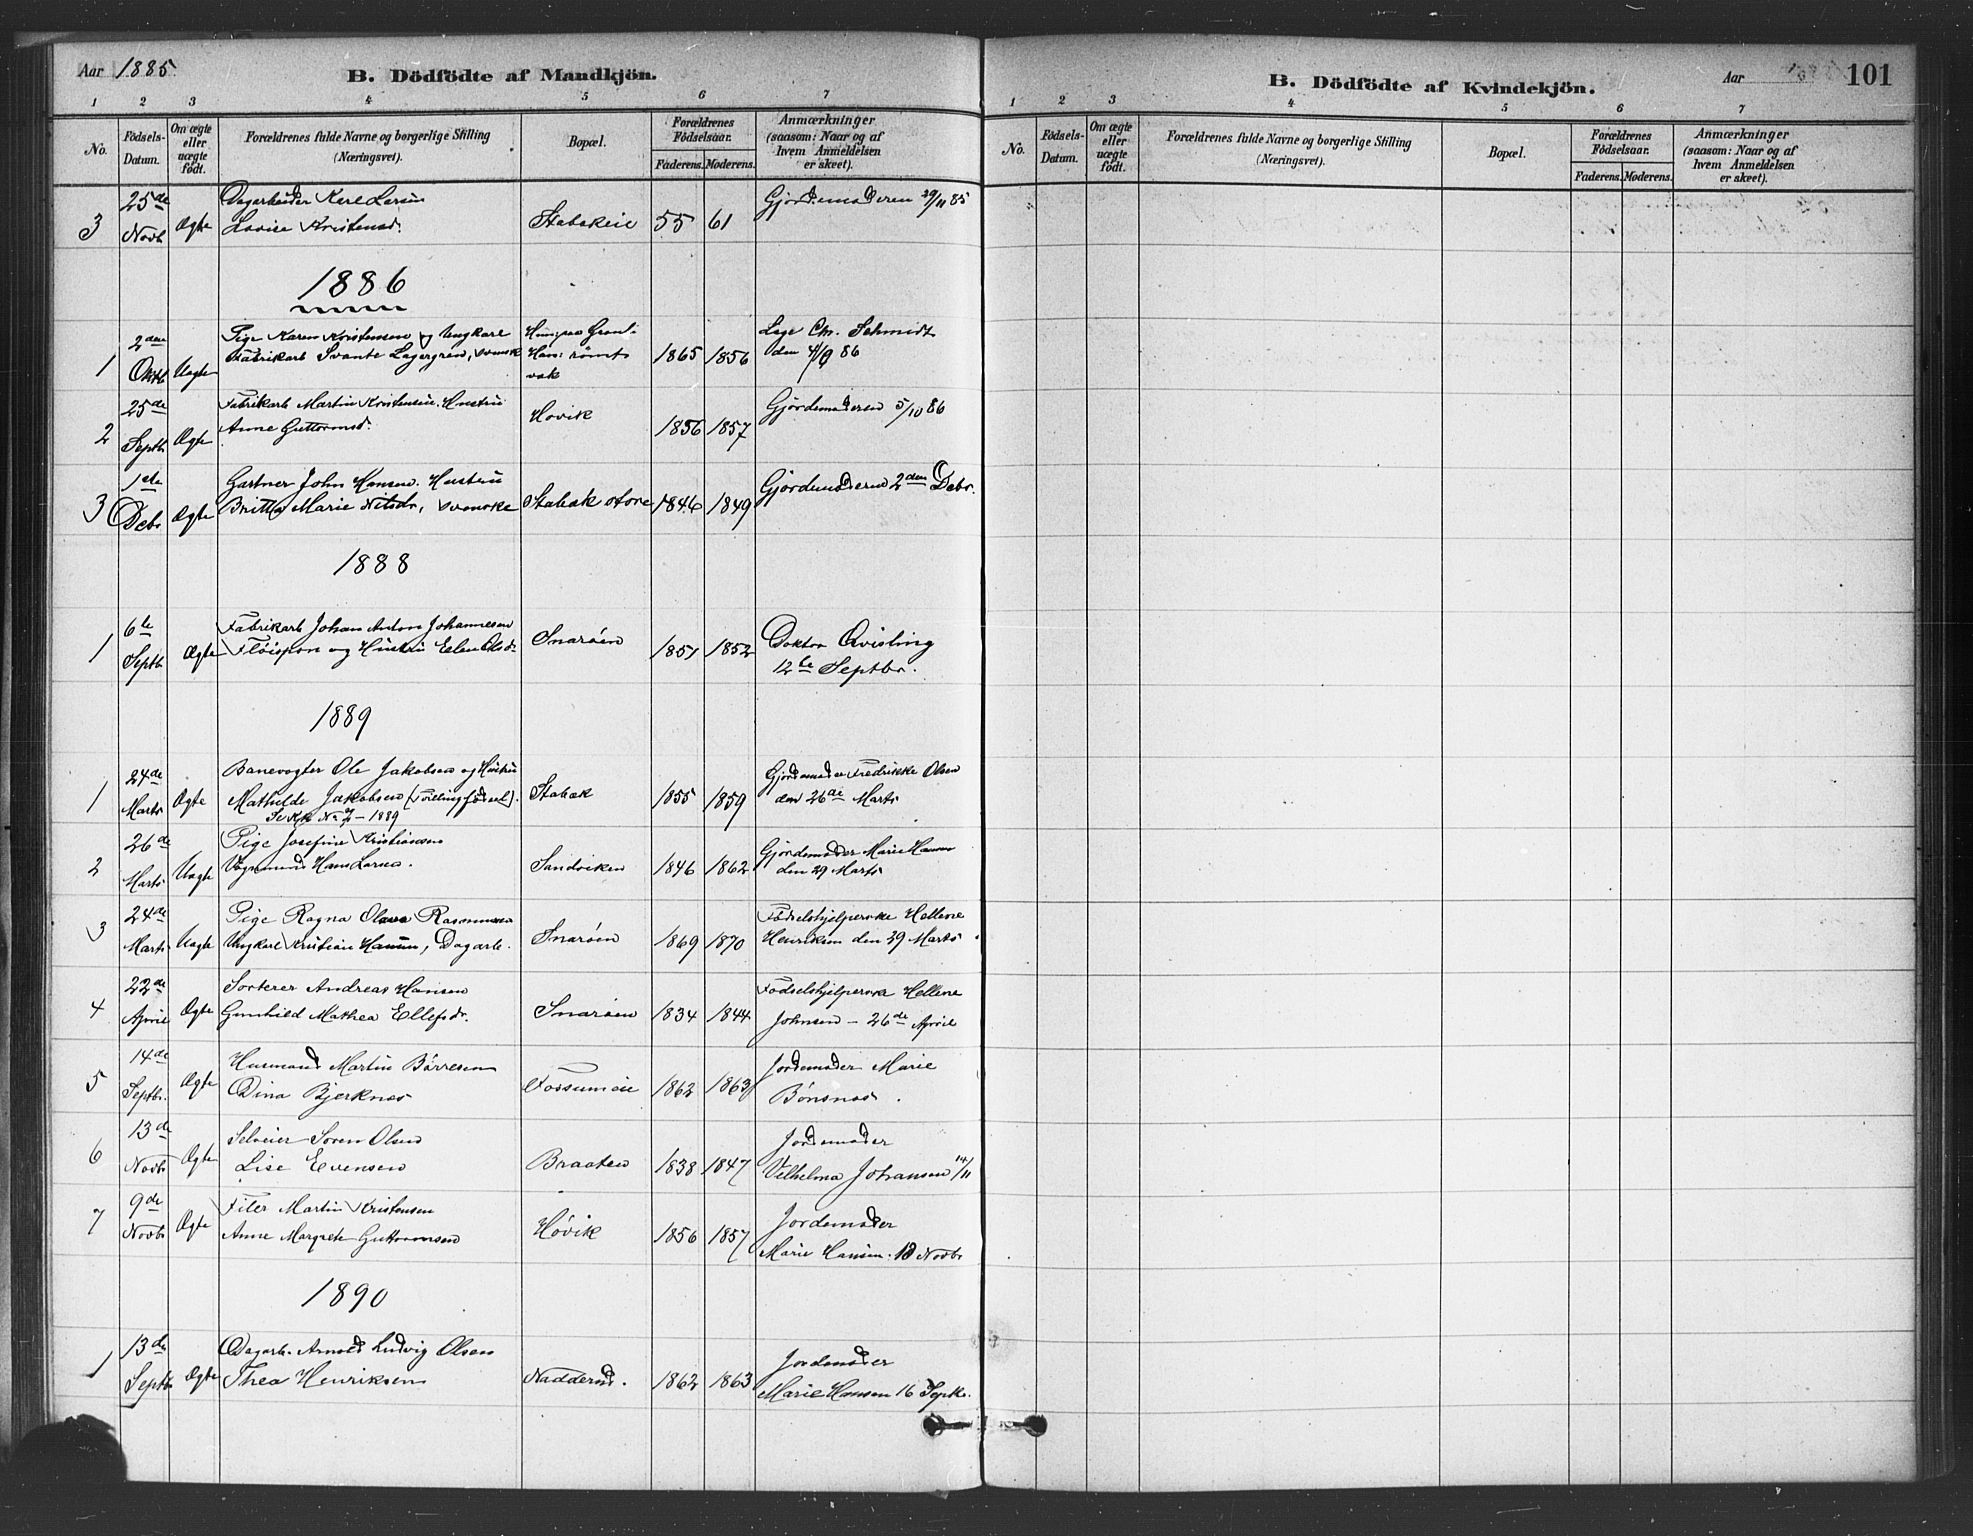 Aar 1885
B. Dödfödte af Mandkjön.
1 2 3 4 5 6 7
No.
Födsels-Datum.
Om ægte eller uægte födt.
Forældrenes fulde Navne og borgerlige Stilling (Næringsvei).
Bopæl.
Forældrenes Födselsaar.
Faderens. Moderens.
Anmærkninger (saasom: Naar og af hvem Anmeldelsen er skeet).
3 25de Novb Ægte Dagarbeider Karl Larsen
Lovise Kristensd. Stabækeie 55 61 Gjordemoderen 29/11 85
1886
1 2den Oktb Uægte Pige Karen Kristensen og Ungkarl
Fabrikarb Svante Lagergren, svensk 1865 1856 Læge Chr. Schmidt
den 4/9 86
2 25de Septbr Ægte Fabrikarb Martin Kristensen. Hustru
Anne Guttormsd. Høvik 1856 1857 Gjordemoderen 5/10 86
3 1ste Decbr Ægte Gartner John Hansen. Hustru
Britta Marie Nilsdr, svenske Stabæk store 1846 1849 Gjordemoderen 2den Decbr.
1888
1 6te Septbr Ægte Fabrikarb Johan Anton Johannesen
Fløispon og Hustru Elen Olsdr Snarøen 1851 1852 Doktor Qvisling
12te Septbr.
1889
1 24de Marts Ægte Banevogter Ole Jakobsen og Hustru
Mathilde Jakobsen (Tvillingfødsel). Stabæk 1855 1859 Gjordemoder Fredrikke Olsen
den 26de Marts
2 26de Marts Uægte Pige Josefine Kristiansen
Vognmand Hans Larsen. Sandviken 1846 1862 Gjordemoder Marie Hansen
den 29 Marts
3 24de Marts Uægte Pige Ragna Olava Rasmussen
Ungkarl Kristian Hansen, Dagarb. Snarøen 1869 1870 Fødselshjelperske Hellene
Henriksen den 29 Marts
4 22de April Ægte Sorterer Andreas Hansen
Gunhild Mathea Ellefsdr. Snarøen 1834 1844 Fødselshjelperske Hellene
Johnsen – 26de April
5 14de Septbr. Ægte Husmand Martin Børresen
Dina Bjerknes Fossumeie 1862 1863 Jordemoder Marie
Bønsnæs.
6 13de Novbr Ægte Selveier Søren Olsen
Lise Evensen Braaten 1838 1847 Jordemoder
Vilhelma Johansen 14/11
7 9de Novbr Ægte Filer Martin Kristensen
Anne Margrete Guttormsen Høvik 1856 1857 Jordemoder
Marie Hansen. 18 Novbr
1890
1 13de Septbr Ægte Dagarb. Arnold Ludvig Olsen
Thea Henriksen Nadderud. 1862 1863 Jordemoder
Marie Hansen 16 Septbr.
B. Dödfödte af Kvindekjön.
Aar
101
1 2 3 4 5 6 7
No.
Födsels-Datum.
Om ægte eller uægte födt.
Forældrenes fulde Navne og borgerlige Stilling (Næringsvei).
Bopæl.
Forældrenes Födselsaar.
Faderens. Moderens.
Anmærkninger (saasom: Naar og af hvem Anmeldelsen er skeet).